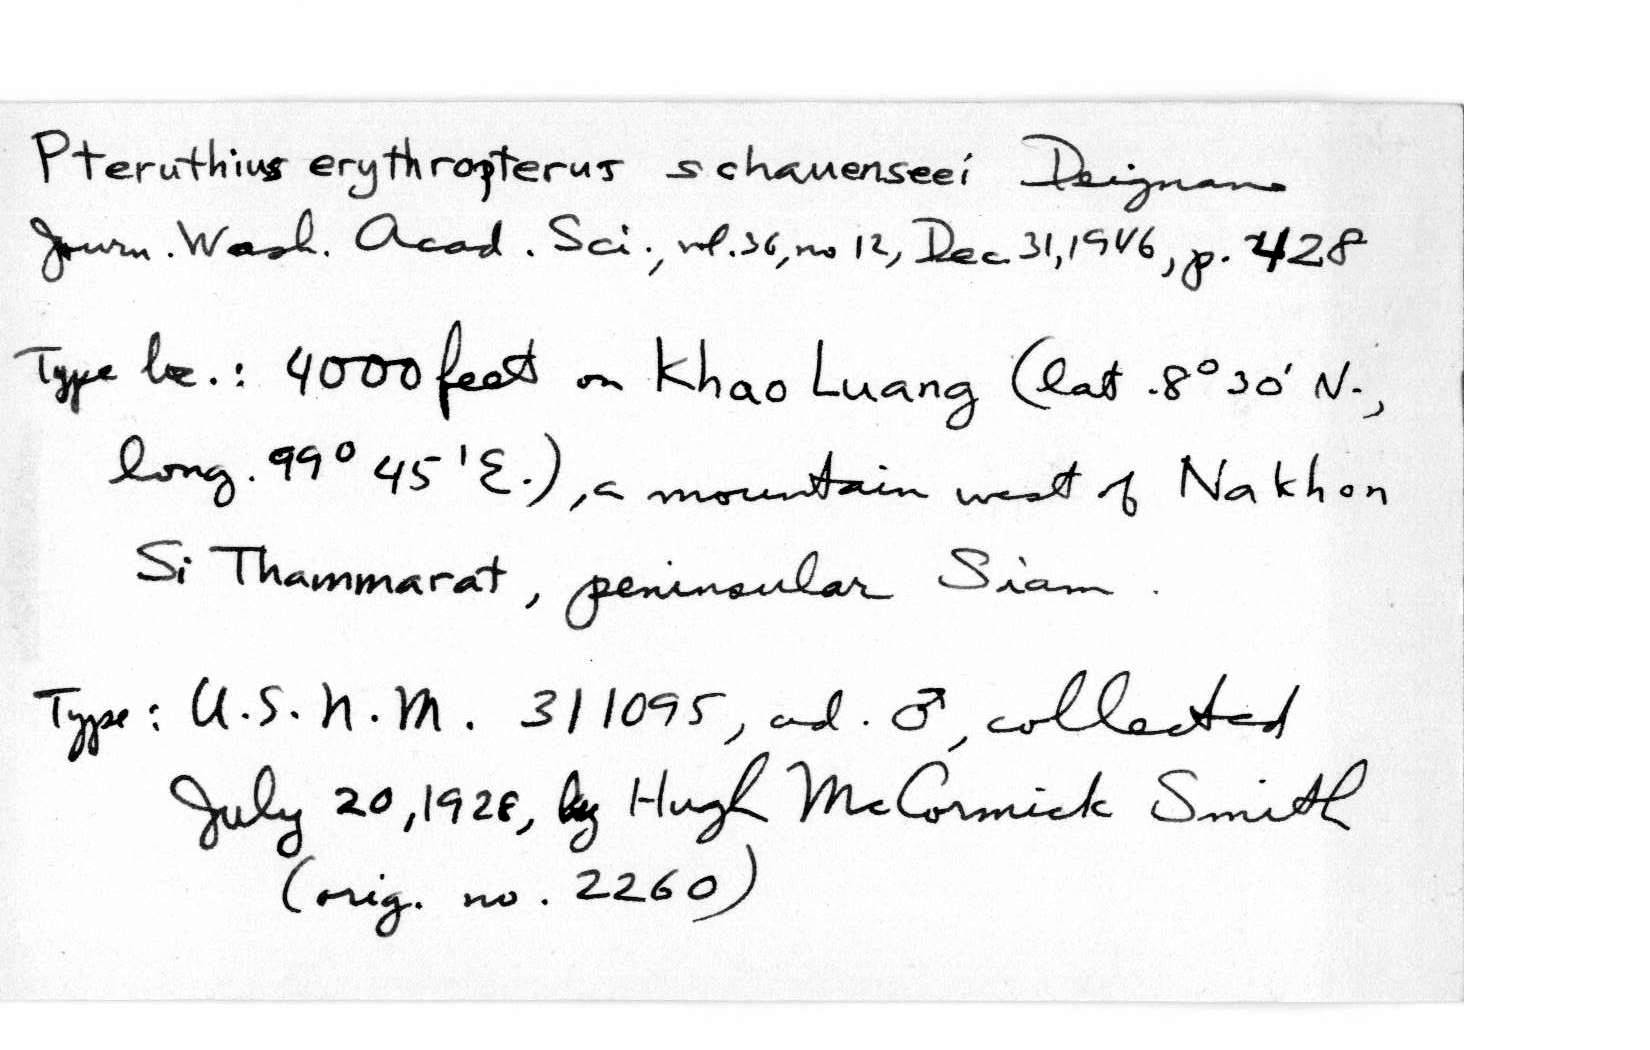 Pteruthius erythropterus schauenseei Deignan
Journ. Wash. Acad. Sci., vol. 36, no 12, Dec. 31, 1946, p. 428
Type loc.: 4000 feet on Khao Luang (lat. 8° 30' N.,
long. 99° 45' E.), a mountain west of Nakhon
Si Thammarat, peninsular Siam.
Type: U.S.N.M. 311095, ad. ♂, collected
July 20, 1928, by Hugh McCormick Smith
(orig. no. 2260)